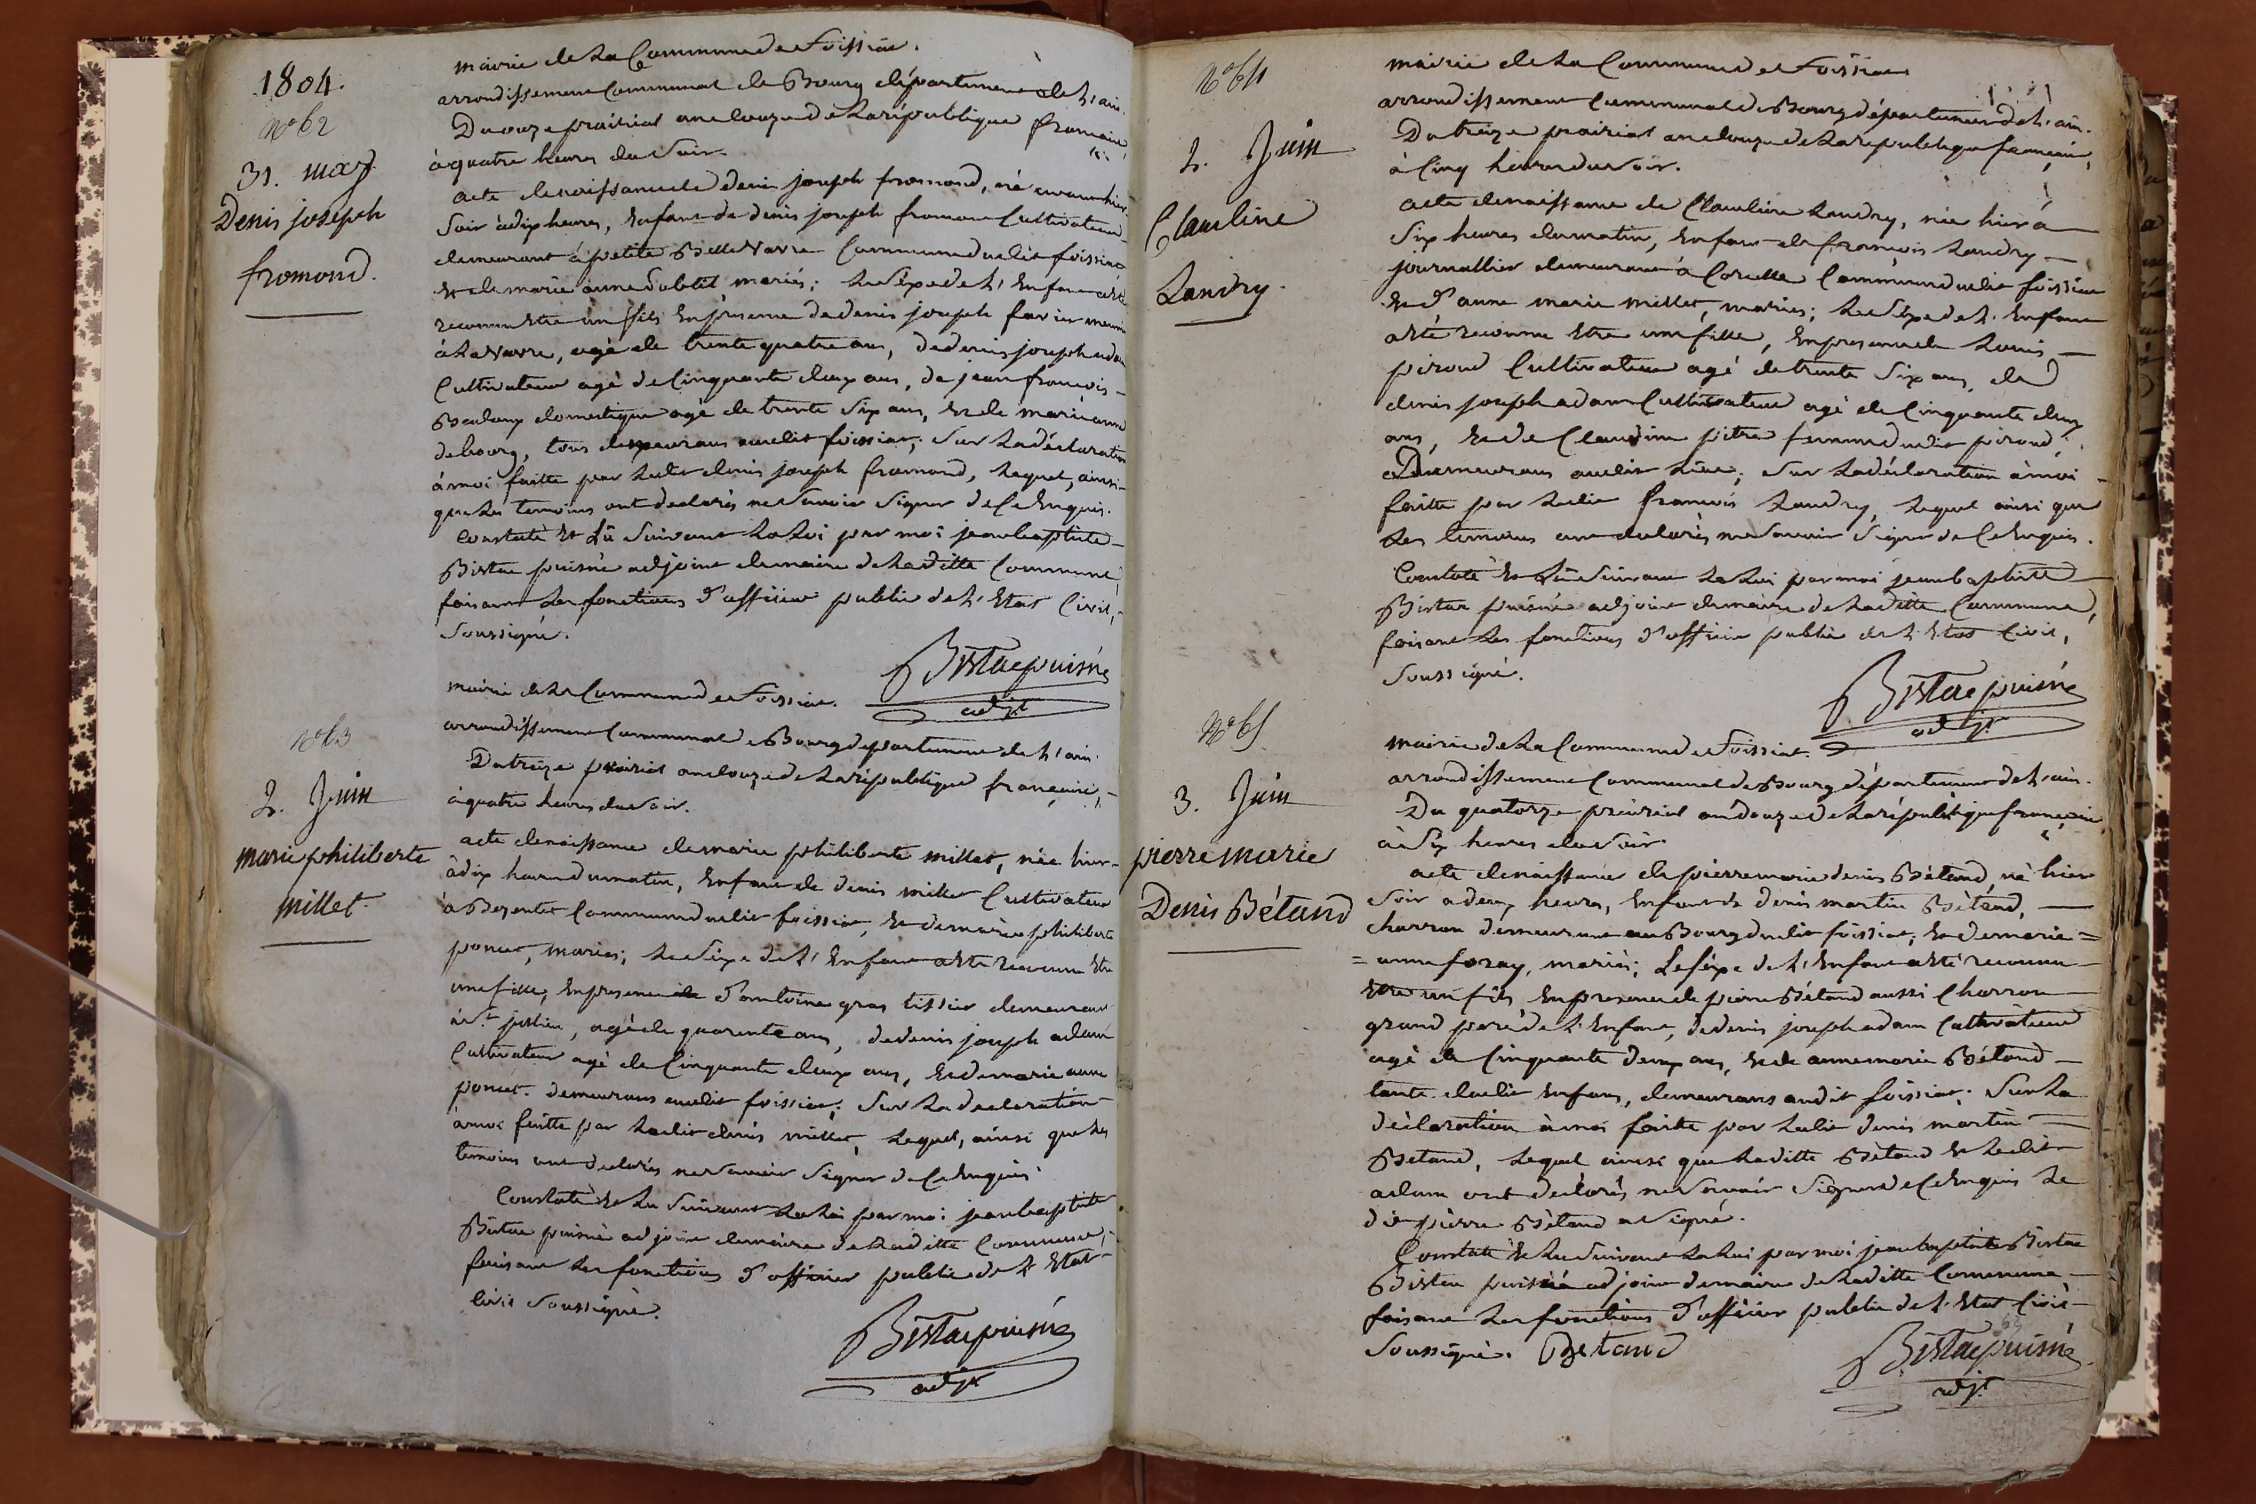 1804.
mairie de la Commune de foissiat.
arrondissement Communal de Bourg département de l'ain.
Du onze prairial an douze de la république française,
à quatre heures du soir.
N° 62
31. may
Denis joseph
fromond.
acte de naissance de denis joseph fromond, né avant hier
soir à dix heures, Enfant de denis joseph fromond Cultivateur
demeurant à petite Bellevavre Commune dudit foissiat
Et de marie anne mariés; Le Sexe de l'Enfant a été
reconnu Etre un fils En présence de denis joseph favier meunier
à La vavre, agé de trente quatre ans, de denis joseph adam
Cultivateur agé de Cinquante deux ans, de jean françois
domestique agé de trente Six ans, Et de marie anne
debourg, tous demeurans audit foissiat; Sur La déclaration
à moi faitte par Ledit denis joseph fromond, Lequel, ainsi
que Les temoins ont declarés ne Savoir Signer de Ce Enquis.
Constaté Et Lû Suivant La Loi par moi jean baptiste
Bistac puisné adjoint de maire de Laditte Commune
faisant Les fonctions d'officier public de L'Etat Civil,
Soussigné.
Bistac puisné
adjt
mairie de La Commune de foissiat.
arrondissement Communal de Bourg département de L'ain.
Du treize prairial an douze de La république française,
à quatre heures du soir.
N° 63
2. Juin
marie philiberte
millet.
acte de naissance de marie philiberte millet, née hier
à dix heures du matin, Enfant de denis millet Cultivateur
à Bezentet Commune dudit foissiat, Et de marie philiberte
poncet, mariés; Le Sexe de L'Enfant a été reconnu Etre
une fille, En présence d'antoine gras tissier demeurant
à St. julien, agé de quarente ans, de denis joseph adam
Cultivateur agé de Cinquante deux ans, Et de marie anne
poncet. demeurans audit foissiat; Sur La declaration
à moi faitte par Ledit denis millet, Lequel, ainsi que Les
temoins ont declarés ne Savoir Signer de Ce Enquis.
Constaté Et Lu Suivant La Loi par moi jean baptiste
Bistac puisné adjoint de maire de Laditte Commune,
faisant Les fonctions d'officier public de L'Etat
Civil Soussigné.
Bistac puisné
adjt
mairie de La Commune de foissiat
arrondissement Communal de Bourg département de L'ain.
Du treize prairial an douze de La république française,
à Cinq heures du soir.
N° 64
2. Juin
Claudine
Landry.
acte de naissance de Claudine Landry, née hier à
Six heures du matin, Enfant de françois Landry
journallier demeurant à Corcelle Commune dudit foissiat
Et d'anne marie millet, mariés; Le Sexe de L'Enfant
a été reconnu Etre une fille, En présence de Louis
piroud Cultivateur agé de trente Six ans, de
denis joseph adam Cultivateur agé de Cinquante deux
ans, Et de Claudine pitre femme dudit piroud;
Demeurans audit Lieu; Sur La déclaration à moi
faitte par Ledit françois Landry, Lequel ainsi que
Les temoins ont declarés ne Savoir Signer de Ce Enquis.
Constaté Et Lû Suivant La Loi par moi jean baptiste
Bistac puisné adjoint de maire de Laditte Commune,
faisant Les fonctions d'officier public de L'Etat Civil,
Soussigné.
Bistac puisné
adjt
mairie de La Commune de foissiat.
arrondissement Communal de Bourg département de L'ain.
Du quatorze prairial an douze de La république française
à Six heures du soir.
N° 65
3. Juin
pierre marie
Denis Bétand
acte de naissance de pierre marie denis Bétand, né hier
Soir a deux heures, Enfant de denis martin Bétand,
charron demeurant au Bourg dudit foissiat; Et de marie =
= anne foray, mariés; Le Sexe de L'Enfant a été reconnu
Etre un fils En présence de pierre Bétand aussi Charron
grand pere de L'Enfant, de denis joseph adam Cultivateur
agé de Cinquante deux ans, Et de anne marie Bétand
tante dudit Enfant, demeurans audit foissiat; Sur La
déclaration à moi faitte par Ledit denis martin
Bétand, Lequel ainsi que Laditte Bétand Et Ledit
adam ont declarés ne Savoir Signer de Ce Enquis Le
dit pierre Bétand a Signé.
Constaté Et Lu Suivant La Loi par moi jean baptiste Bistac
Bistac puisné adjoint de maire de Laditte Commune,
faisant Les fonctions d'officier public de L'Etat Civil
Soussigné. Betand
Bistac puisné
adjt